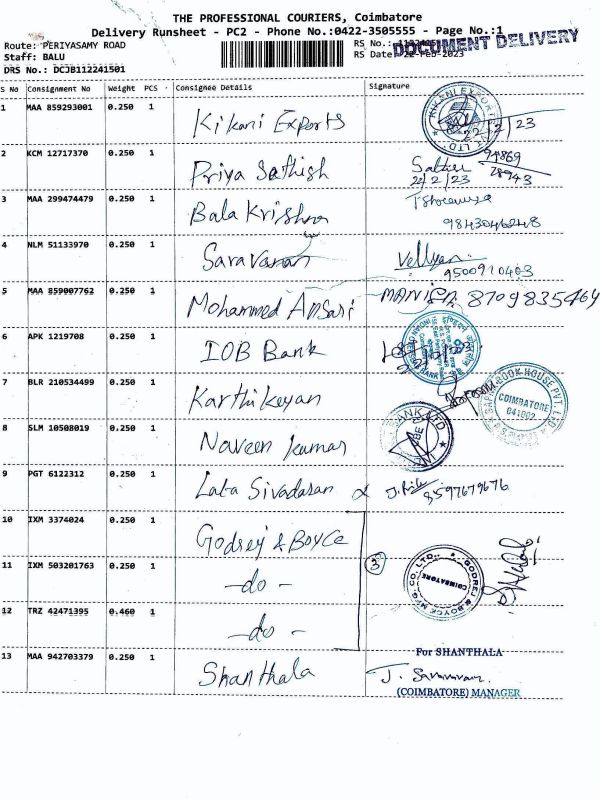 THE PROFESSIONAL COURIERS, Coimbatore
Delivery Runsheet - PC2 - Phone No.:0422-3505555 - Page No.:1
Route: PERIYASAMY ROAD
RS No.:
DOCUMENT DELIVERY
Staff: BALU
RS Date: 22-Feb-2023
DRS No.: DCJB112241501
S No Consignment No Weight PCS Consignee Details Signature
1 MAA 859293001 0.250 1 Kikani Exports
2 KCM 12717370 0.250 1 Priya Sathish
22/2/23
3 MAA 299474479 0.250 1 Bala Krishna
9843046248
4 NLM 51133970 0.250 1 Saravanan
9500910463
5 MAA 859007762 0.250 1 Mohammed Ansari 8709835464
6 APK 1219708 0.250 1 IOB Bank
7 BLR 210534499 0.250 1 Karthikeyan
BOOK HOUSE PVT. LTD
COIMBATORE
641002
8 SLM 10508019 0.250 1 Naveen kumar
9 PGT 6122312 0.250 1 Lata Sivadasan
8597679676
10 IXM 3374024 0.250 1 Godrej & Boyce
11 IXM 503201763 0.250 1 -do- 3
GODREJ & BOYCE MFG. CO. LTD.
COIMBATORE
12 TRZ 42471395 0.460 1 -do-
13 MAA 942703379 0.250 1 Shanthala
For SHANTHALA
(COIMBATORE) MANAGER